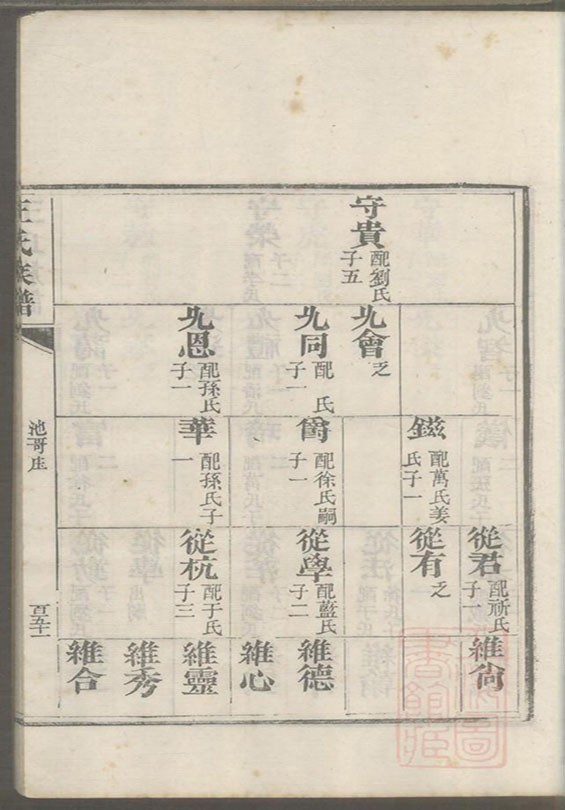 守貴 配劉氏 子五
九會 乏
九同 配 氏 子一
九恩 配孫氏 子一
鎡 配萬氏姜 氏子一
爵 配徐氏嗣 子一
華 配孫氏子 一
從君 配 氏 子一
從有 乏
從學 配藍氏 子二
從杭 配于氏 子三
維尙
維德
維心
維靈
維秀
維合
王氏族譜
池哥庄
百五十一